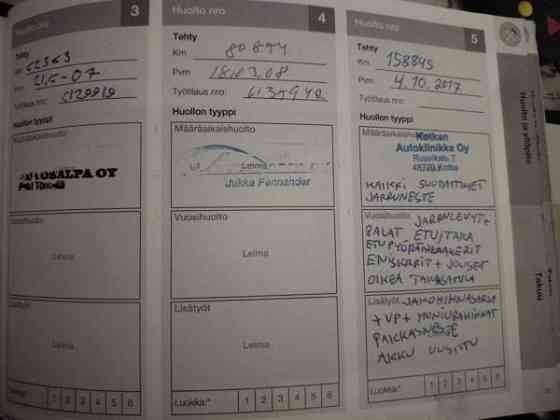 Huolto nro
3
Tehty
52363
Pvm
Työtilaus nro:
Huollon tyyppi
AUTOSALPA OY
Vuosihuolto
Leima
Lisätyöt
Leima
Luokka:*
1 2 3 4 5 6
Huolto nro
4
Tehty
Km
Pvm
Työtilaus nro:
Huollon tyyppi
Määräaikaishuolto
Leima
Jukka Fernander
Vuosihuolto
Leima
Lisätyöt
Leima
Luokka:*
1 2 3 4 5 6
Huolto nro
5
Tehty
Km 158845
Pvm 4.10.2017
Työtilaus nro:
Huollon tyyppi
Määräaikaishuolto
Kotkan
Autoklinikka Oy
Ruukinkatu 7
Kotka
KAIKKI SUODATTIMET
JARRUNESTE
Vuosihuolto JARRULEVYT +
PALAT ETU/TAKA
ETUPYÖRÄNLAAKERIT
ENISKARIT + JOUSET
OIKEA TAKASATULA
Lisätyöt JAKOHIHNASARJA
+ VP + MONIURAHIHNAT
AKKU UUSITTU
Luokka:*
1 2 3 4 5 6
Huolto ja ylläpito
Takuu